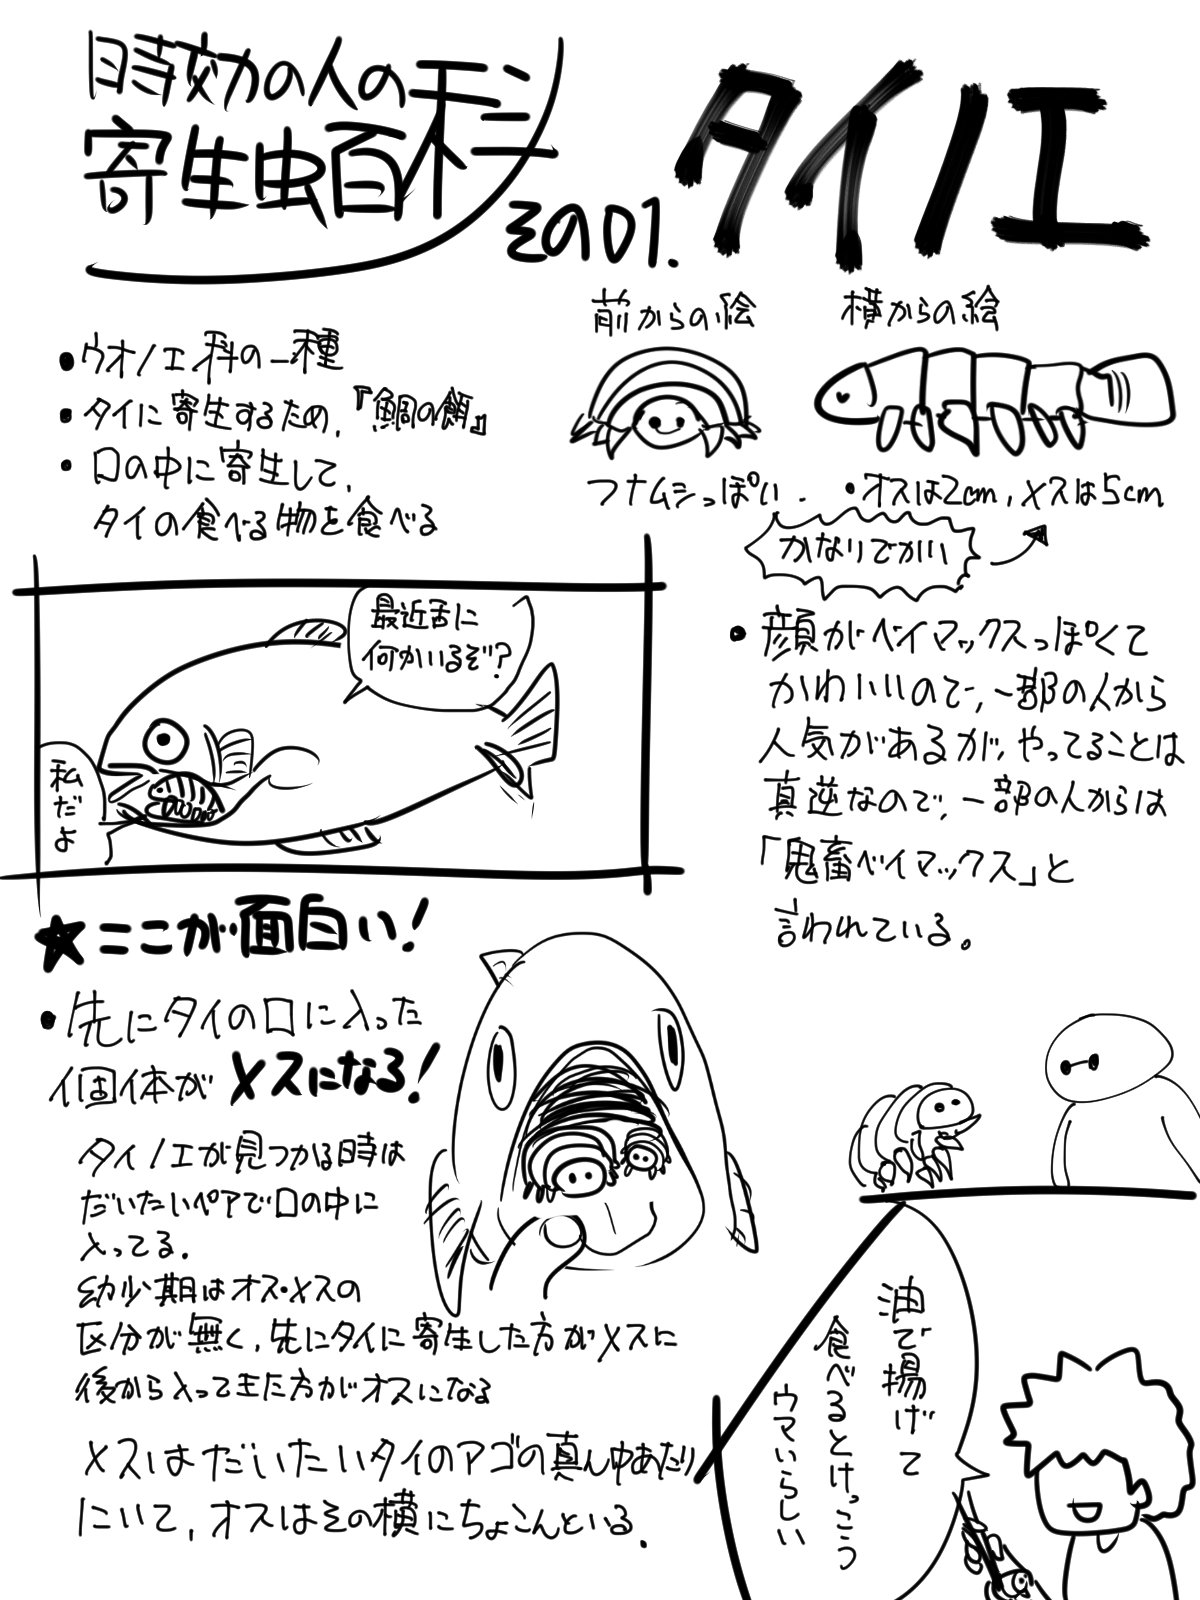 時効の人の
寄生虫百科
その01.
タイノエ
前からの絵
横からの絵
フナムシっぽい.
・オスは2cm,メスは5cm
かなりでかい
・ウオノエ科の一種
・タイに寄生するため、『鯛の餌』
・口の中に寄生して、
タイの食べる物を食べる
最近舌に
何かいるぞ?
私だよ
・顔がベイマックスっぽくて
かわいいので、一部の人から
人気があるが、やってることは
真逆なので、一部の人からは
「鬼畜ベイマックス」と
言われている。
★ここが面白い!
・先にタイの口に入った
個体がメスになる!
タイノエが見つかる時は
だいたいペアで口の中に
入ってる.
幼少期はオス・メスの
区分が無く、先にタイに寄生した方がメスに
後から入ってきた方がオスになる
メスはだいたいタイのアゴの真ん中あたり
にいて、オスはその横にちょこんといる.
油で揚げて
食べるとけっこう
ウマいらしい